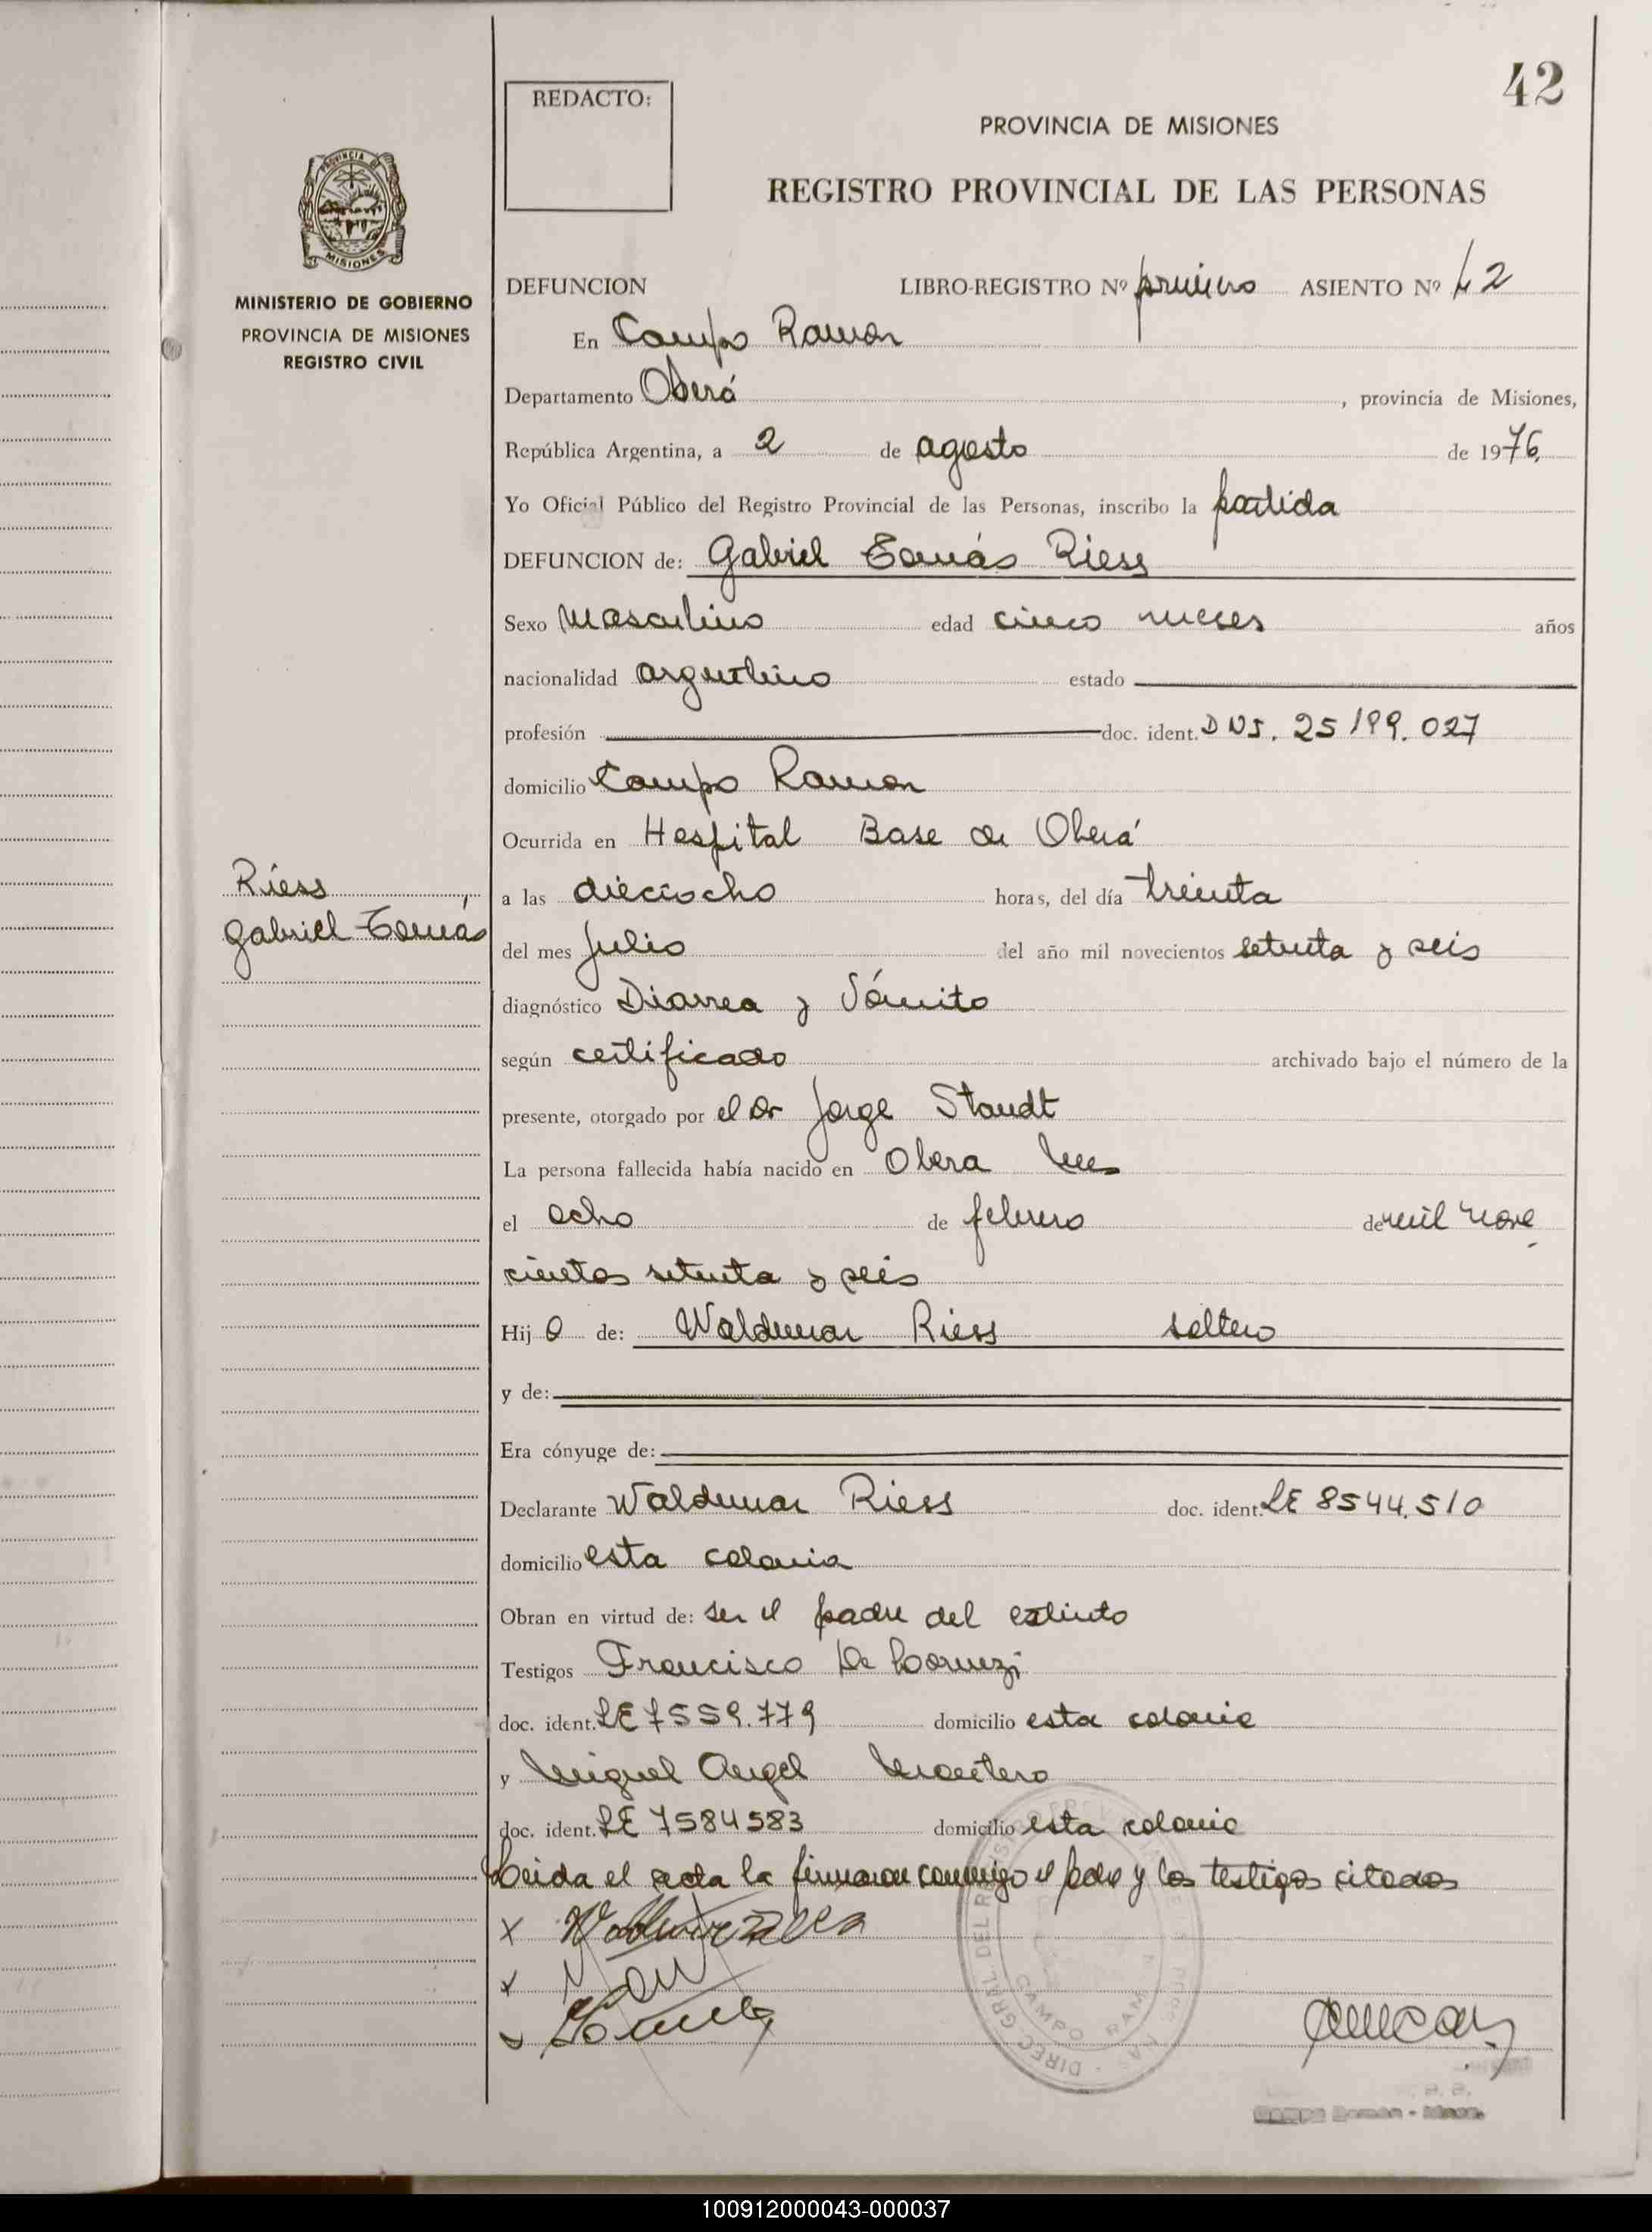 42
REDACTO:
PROVINCIA DE MISIONES
REGISTRO PROVINCIAL DE LAS PERSONAS
PROVINCIA DE
MISIONES
MINISTERIO DE GOBIERNO
PROVINCIA DE MISIONES
REGISTRO CIVIL
DEFUNCION LIBRO-REGISTRO Nº primero ASIENTO Nº 42
En Campo Ramon
Departamento Oberá, provincia de Misiones,
República Argentina, a 2 de agosto de 1976
Yo Oficial Público del Registro Provincial de las Personas, inscribo la partida
DEFUNCION de: Gabriel Tomás Riess
Sexo Masculino edad cinco meses años
nacionalidad argentino estado
profesión doc. ident. DNI. 25199.027
domicilio Campo Ramon
Ocurrida en Hospital Base de Oberá
Riess,
Gabriel Tomás
a las dieciocho horas, del día treinta
del mes Julio del año mil novecientos setenta y seis
diagnóstico Diarrea y Vómito
según certificado archivado bajo el número de la
presente, otorgado por el Dr Jorge Staudt
La persona fallecida había nacido en Obera Mes
el ocho de febrero de mil nove
cientos setenta y seis
Hijo de: Waldemar Riess soltero
y de:
Era cónyuge de:
Declarante Waldemar Riess doc. ident. LE 8544.510
domicilio esta colonia
Obran en virtud de: ser el padre del extinto
Testigos Francisco De
doc. ident. LE 7559.779 domicilio esta colonia
y Miguel Angel Montero
doc. ident. LE 7584583 domicilio esta colonia
Leida el acta la firmaron conmigo el padre y los testigos citados
DIREC. GRAL. DEL REGISTRO
CAMPO RAMON
Campo Ramón - Mnes.
100912000043-000037